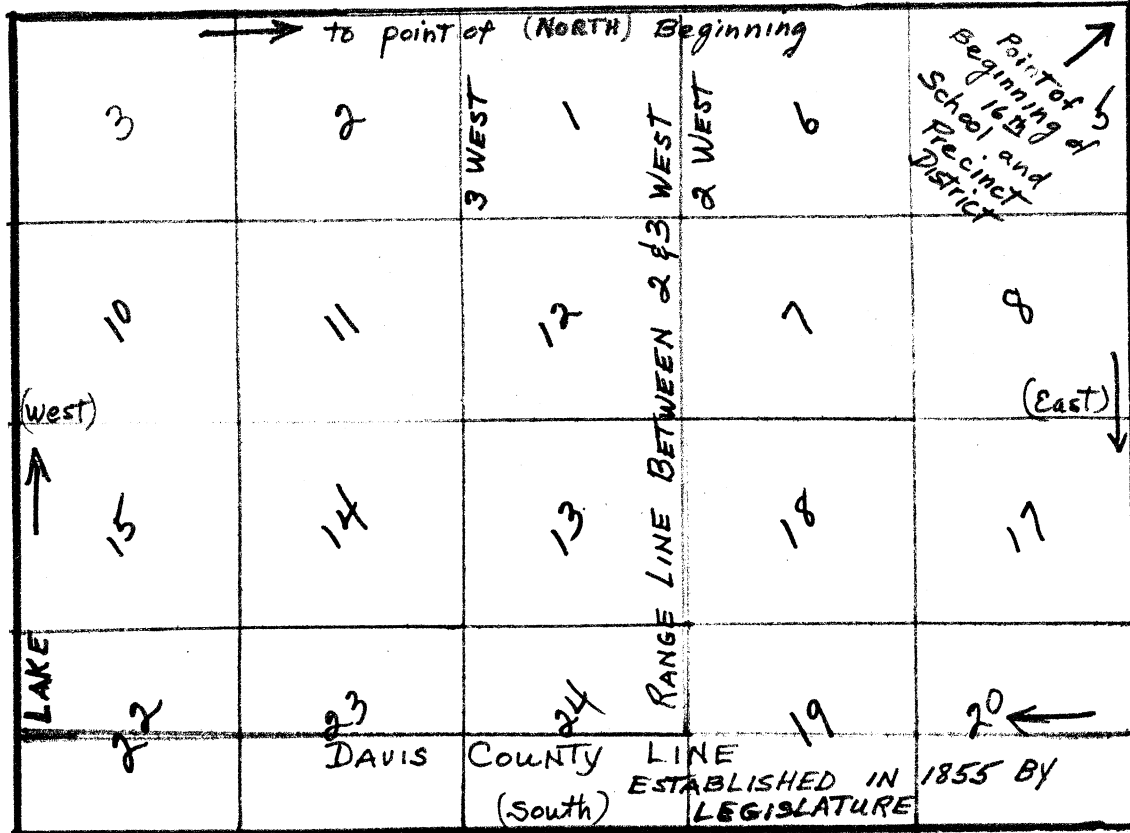 to point of (NORTH) Beginning
Point of
Beginning of
16th
School and
Precinct
District
3
2
1
6
5
3 WEST
2 WEST
RANGE LINE BETWEEN 2 &3 WEST
10
11
12
7
8
(West)
(East)
15
14
13
18
17
LAKE
22
23
24
19
20
DAVIS COUNTY LINE
ESTABLISHED IN 1855 BY
LEGISLATURE
(South)